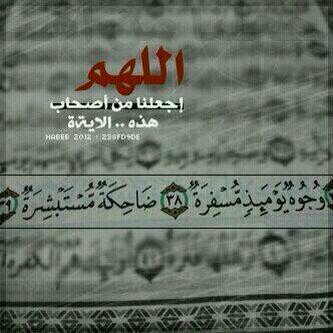 اللهم
إجعلنا من أصحاب
هذه .. الآية
HABEB 2012 : 23GFD9DE
وُجُوهٌ يَوْمَئِذٍ مُّسْفِرَةٌ ٣٨ ضَاحِكَةٌ مُّسْتَبْشِرَةٌ ٣٩